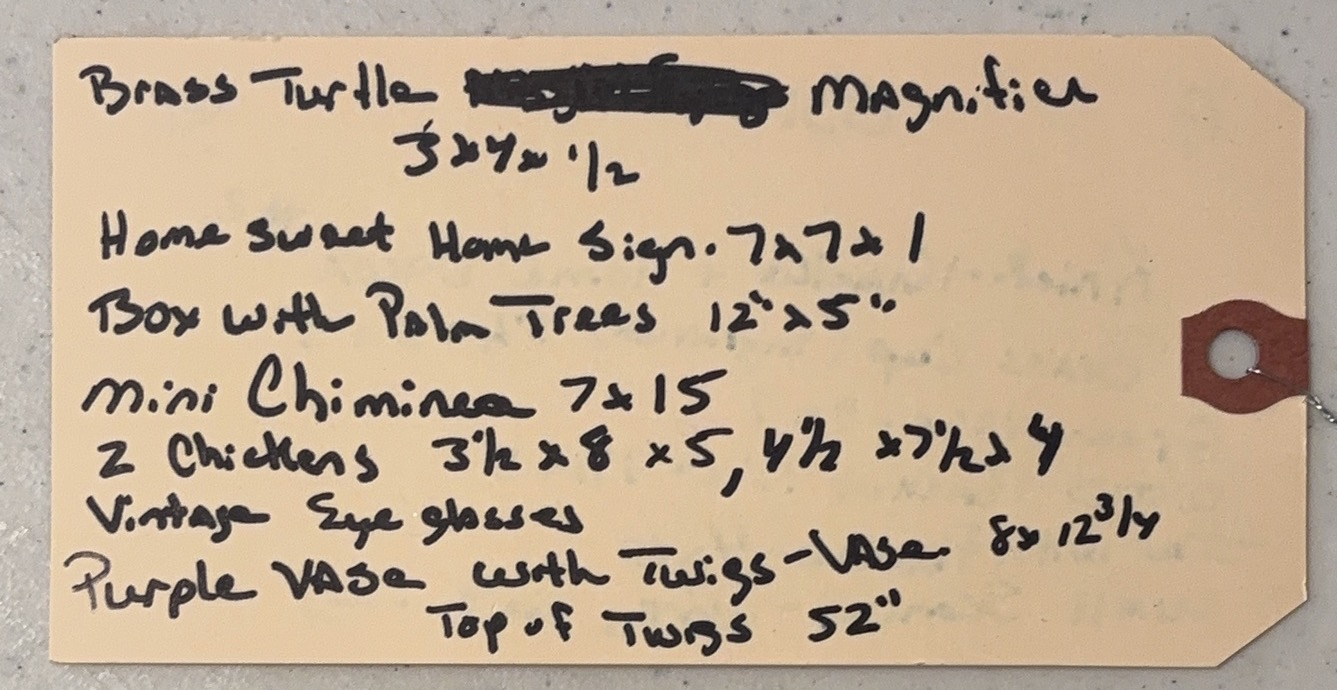 Brass Turtle Magnifier
3x4x 1/2
Home Sweet Home Sign. 7x7x1
Box with Palm Trees 12"x5"
Mini Chiminea 7x15
2 Chickens 3 1/2 x 8 x 5, 4 1/2 x 7 1/2 x 4
Vintage Eye glasses
Purple VASe with Twigs-VASe 8x 12 3/4
Top of Twigs 52"